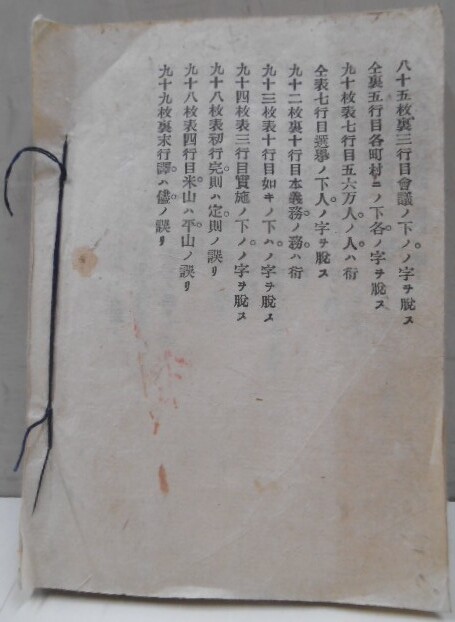 八十五枚裏三行目會議ノ下ノノ字ヲ脫ス
仝裏五行目各町村ニノ下各ノ字ヲ脫ス
九十枚表七行目五六万人ノ人ハ衍
仝表七行目選擧ノ下人ノ字ヲ脫ス
九十二枚裏十行目本義務ノ務ハ衍
九十三枚表十行目如キノ下ハノ字ヲ脫ス
九十四枚表三行目實施ノ下ノノ字ヲ脫ス
九十八枚表初行完則ハ定則ノ誤リ
九十八枚表四行目米山ハ平山ノ誤リ
九十九枚裏末行譯ハ儘ノ誤リ